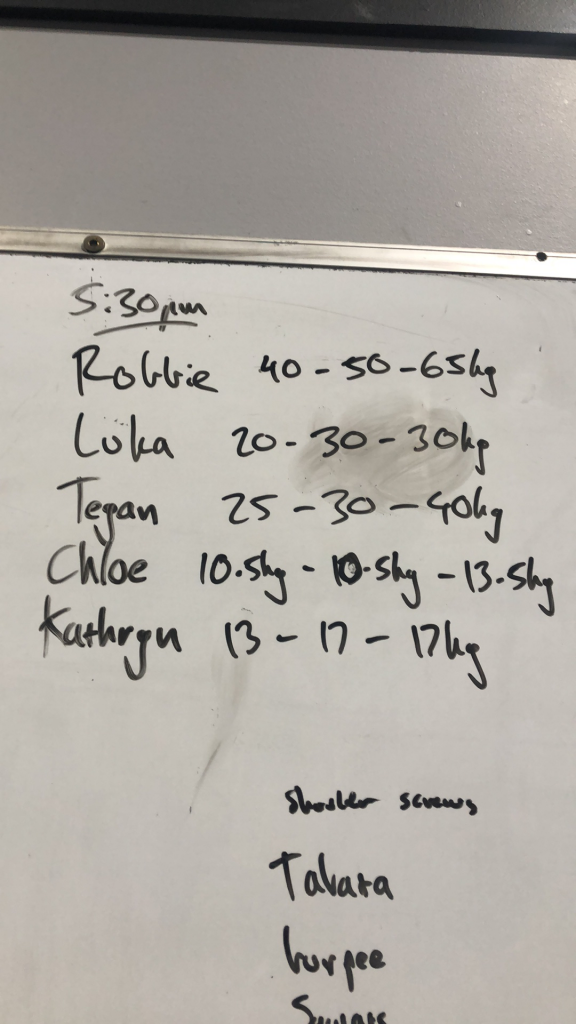 5:30pm
Robbie 40 - 50 - 65kg
Luka 20 - 30 - 30kg
Tegan 25 - 30 - 40kg
Chloe 10.5kg - 10.5kg - 13.5kg
Kathryn 13 - 17 - 17kg
screws
Tabata
burpee